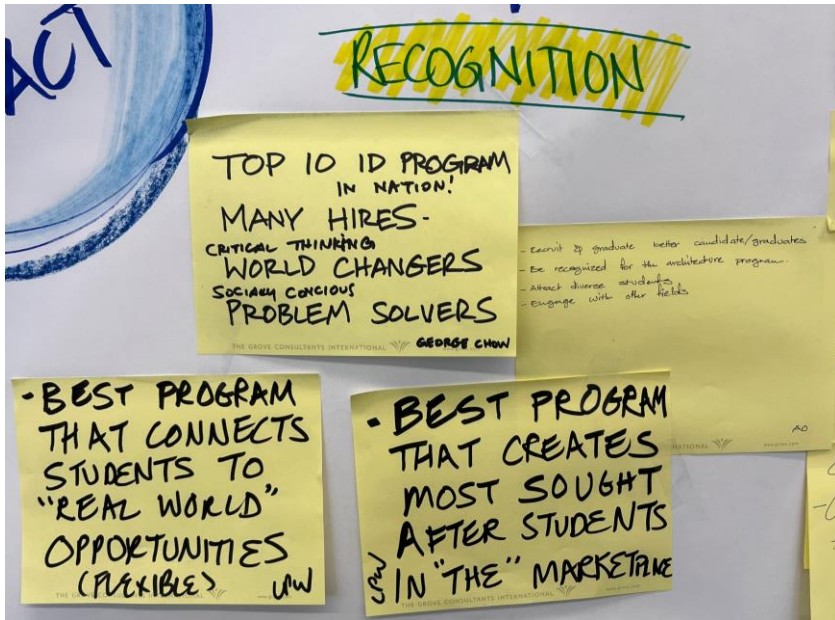 ACT
RECOGNITION
TOP 10 ID PROGRAM
IN NATION!
MANY HIRES-
CRITICAL THINKING
WORLD CHANGERS
SOCIALLY CONCIOUS
PROBLEM SOLVERS
THE GROVE CONSULTANTS INTERNATIONAL
GEORGE CHOW
- Recruit & graduate better candidate/graduates
- Be recognized for the architecture program.
- Attract diverse students
- Engage with other fields
AO
NATIONAL
www.grove.com
- BEST PROGRAM
THAT CONNECTS
STUDENTS TO
"REAL WORLD"
OPPORTUNITIES
(FLEXIBLE)
- BEST PROGRAM
THAT CREATES
MOST SOUGHT
AFTER STUDENTS
IN "THE" MARKETPLACE
THE GROVE CONSULTANTS INTERNATIONAL